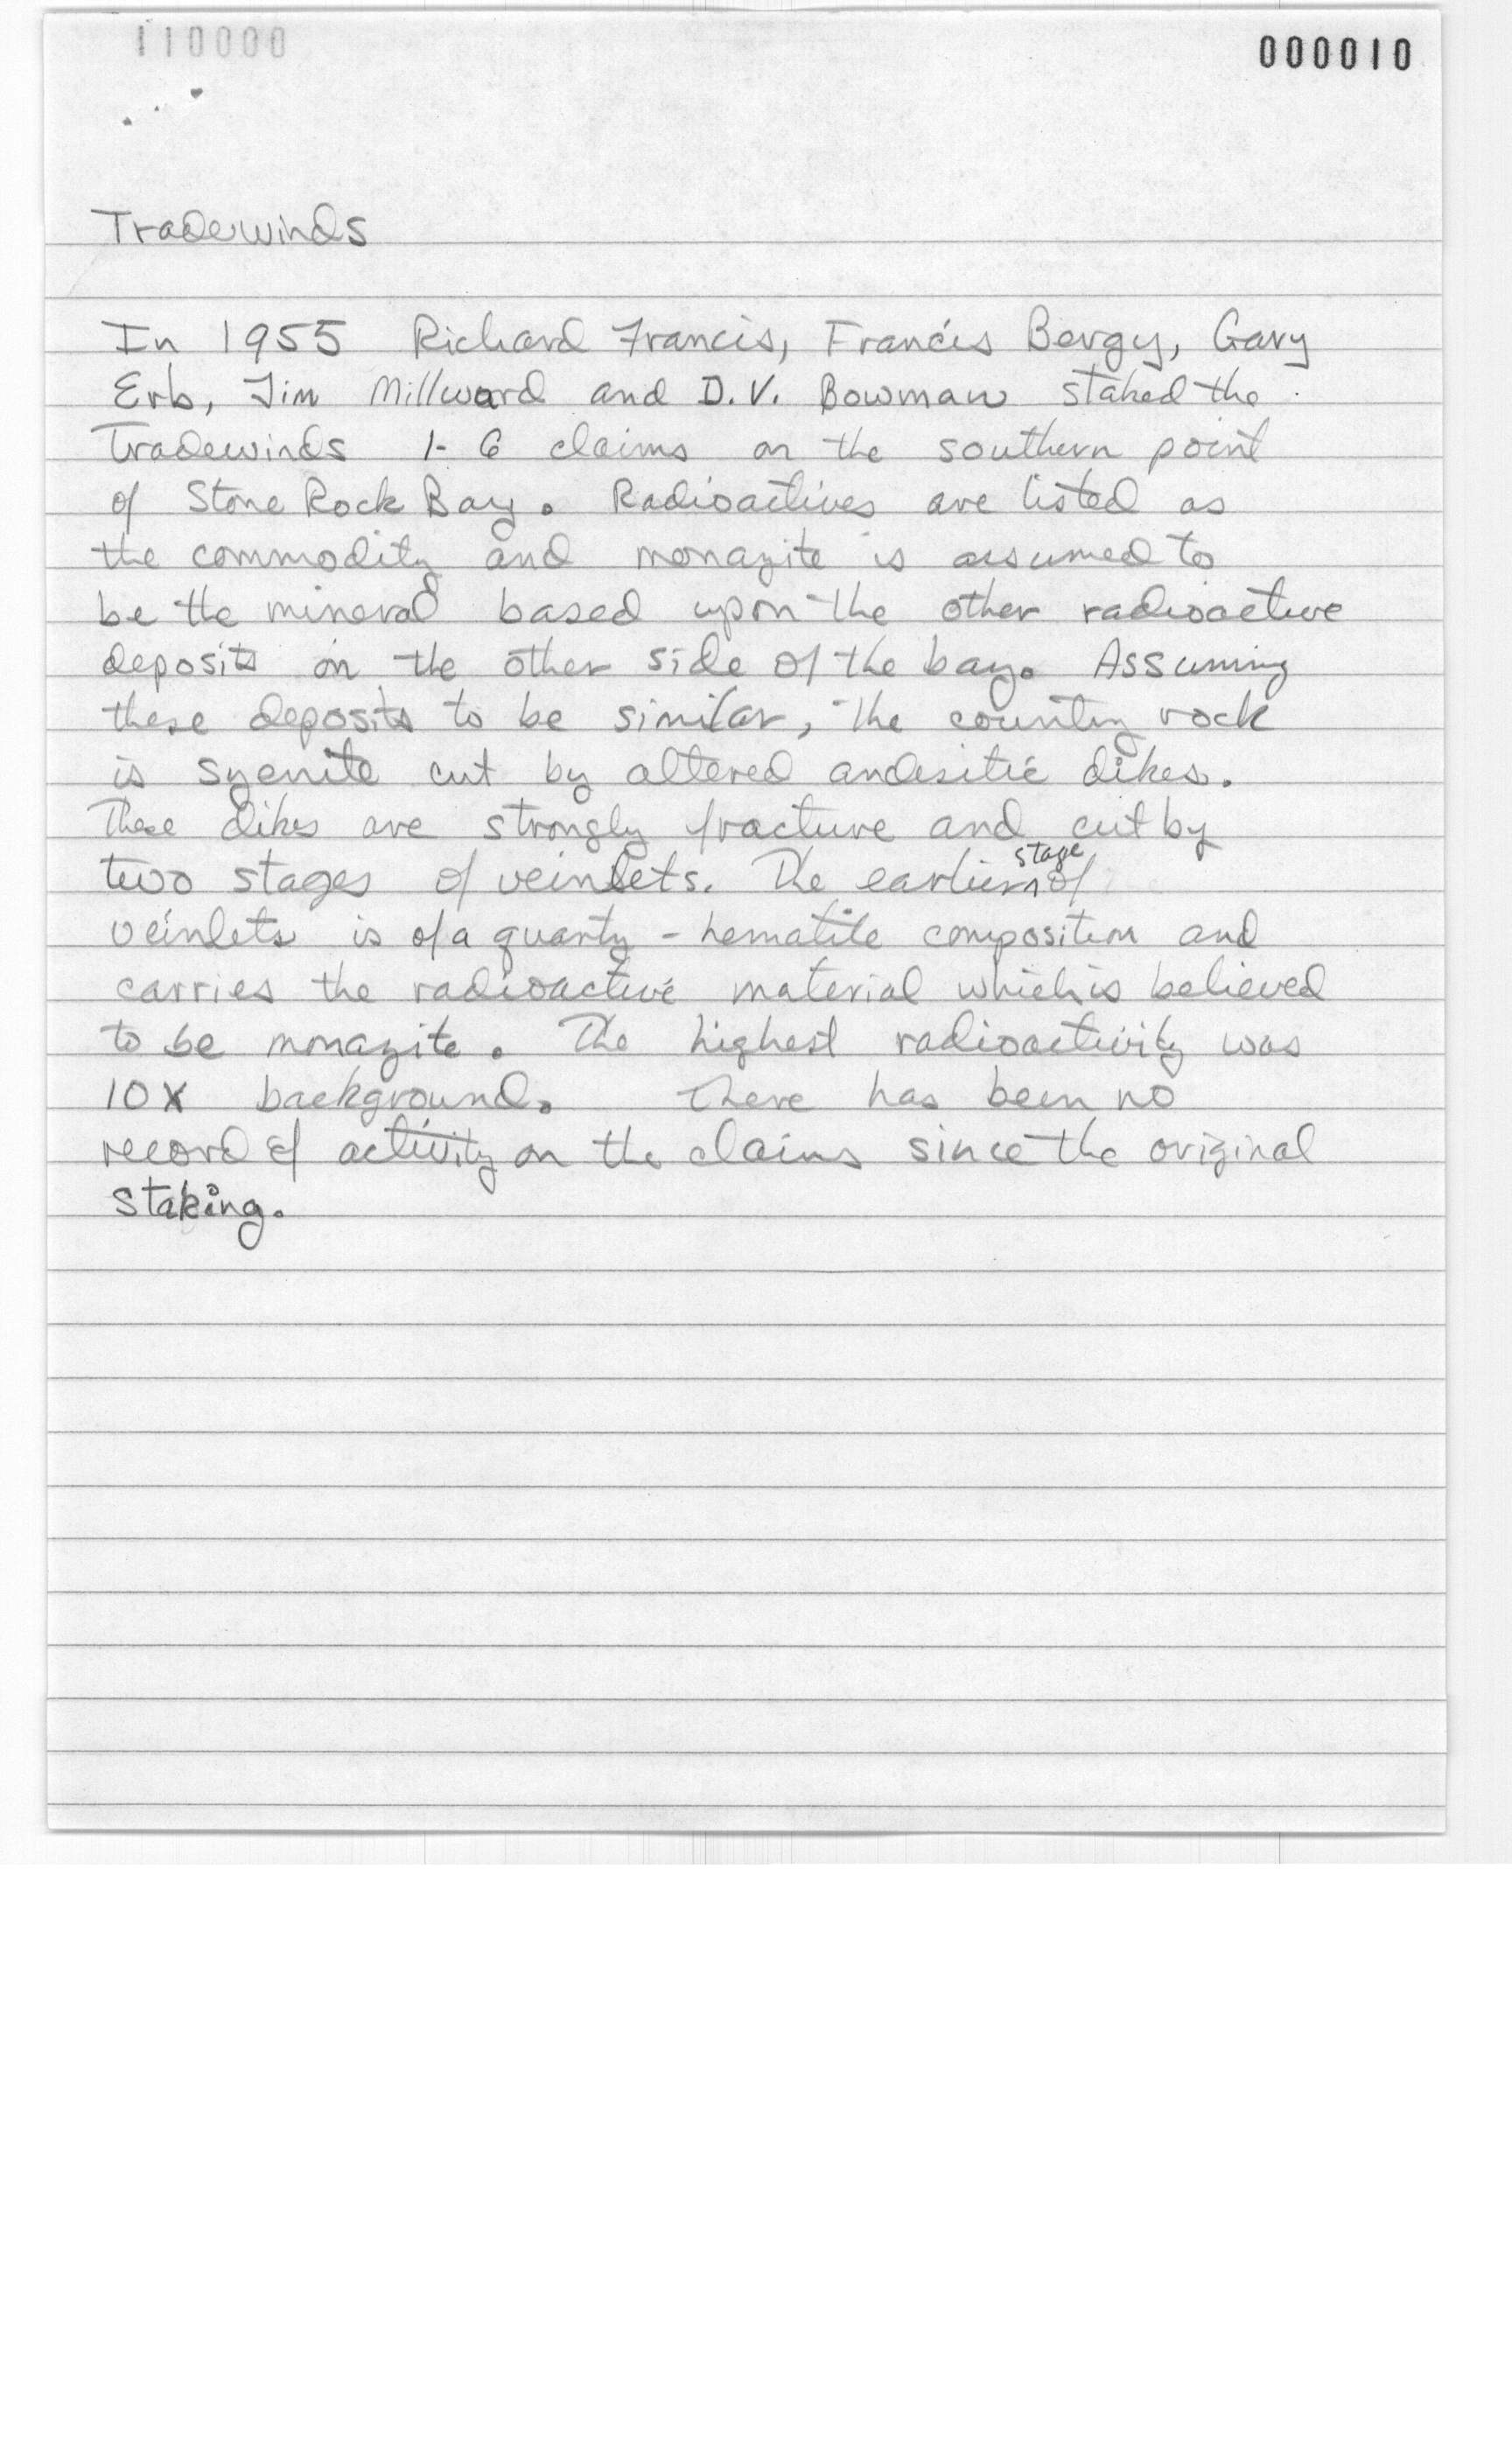 110000
000010
Tradewinds
In 1955 Richard Francis, Francis Bergy, Gary
Erb, Jim Millward and D.V. Bowman staked the
Tradewinds 1-6 claims on the southern point
of Stone Rock Bay. Radioactives are listed as
the commodity and monazite is assumed to
be the mineral based upon the other radioactive
deposits on the other side of the bay. Assuming
these deposits to be similar, the country rock
is syenite cut by altered andesitic dikes.
These dikes are strongly fracture and cut by
two stages of veinlets. The earlier stage of
veinlets is of a quartz - hematite composition and
carries the radioactive material which is believed
to be monazite. The highest radioactivity was
10X background. There has been no
record of activity on the claims since the original
staking.